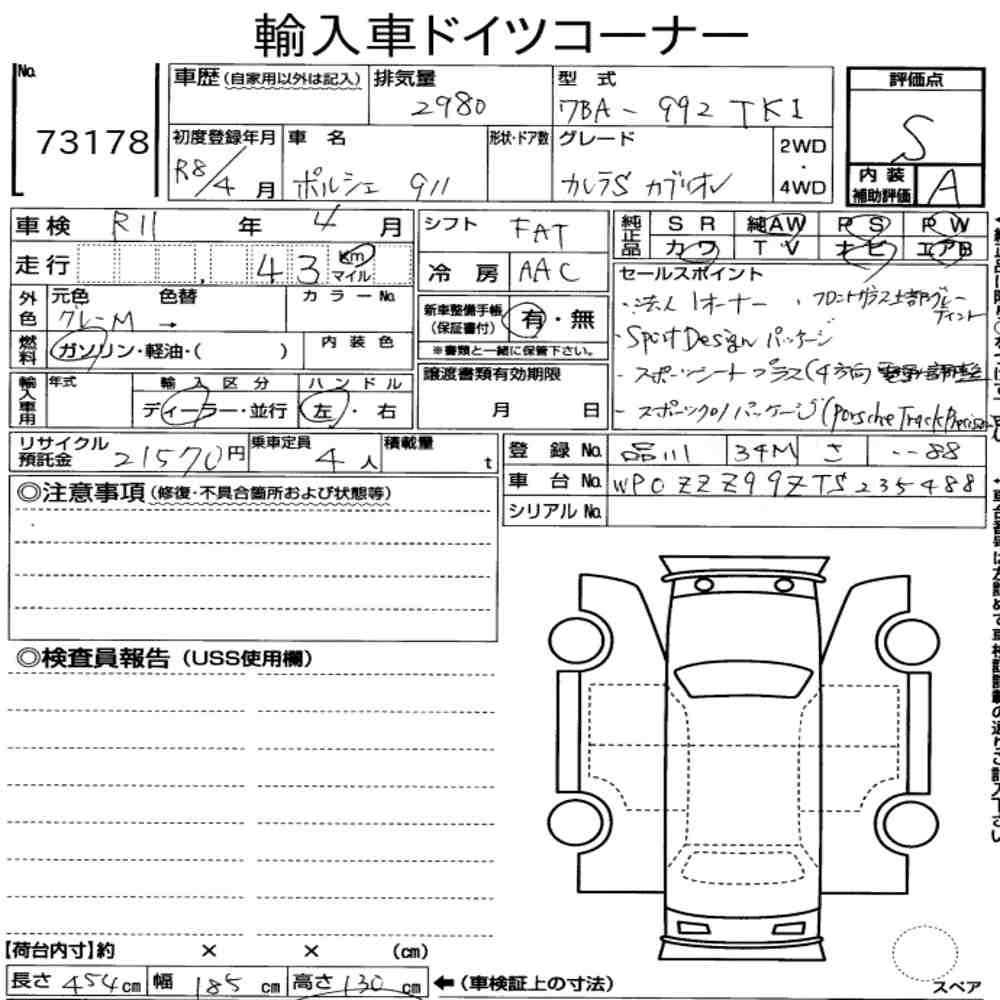 輸入車ドイツコーナー
No.
73178
車歴(自家用以外は記入)
排気量
2980
型 式
7BA-992TK1
評価点
S
内装補助評価
A
初度登録年月
R8/4月
車 名
ポルシェ 911
形状・ドア数
グレード
カレラS カブリオレ
2WD・4WD
車検 R11年 4月
シフト
FAT
純正品
SR 純AW PS PW
カワ TV ナビ エアB
走行
43
Km
マイル
冷房
AAC
セールスポイント
・法人1オーナー ・フロントガラス上部グレーティント
・Sport Design パッケージ
・スポーツシートプラス(4方向電動調整
・スポーツクロノパッケージ(Porsche Track Precision
外色
元色
グレーM
色替
→
カラーNo.
新車整備手帳(保証書付)
有・無
※書類と一緒に保管下さい。
燃料
ガソリン・軽油・( )
内装色
譲渡書類有効期限
月 日
輸入車用
年式
輸入区分
ディーラー・並行
ハンドル
左・右
リサイクル預託金
21570円
乗車定員
4人
積載量
t
登録No.
品川 34M さ ・・88
車台No.
WP0ZZZ99ZTS235488
シリアルNo.
◎注意事項(修復・不具合箇所および状態等)
◎検査員報告(USS使用欄)
【荷台内寸】約 × × (cm)
長さ 454cm
幅 185cm
高さ 130cm
←(車検証上の寸法)
スペア